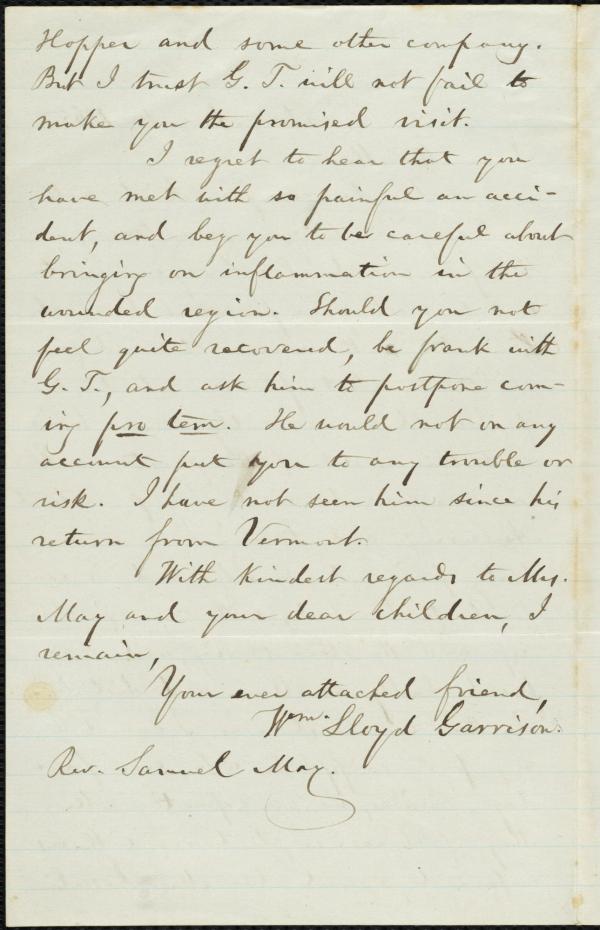 Hopper and some other company.
But I trust G. T. will not fail to
make you the promised visit.
I regret to hear that you
have met with so painful an acci-
dent, and beg you to be careful about
bringing on inflammation in the
wounded region. Should you not
feel quite recovered, be frank with
G. T., and ask him to postpone com-
ing pro tem. He would not on any
account put you to any trouble or
risk. I have not seen him since his
return from Vermont.
With kindest regards to Mrs.
May and your dear children, I
remain,
Your ever attached friend,
Wm. Lloyd Garrison.
Rev. Samuel May.